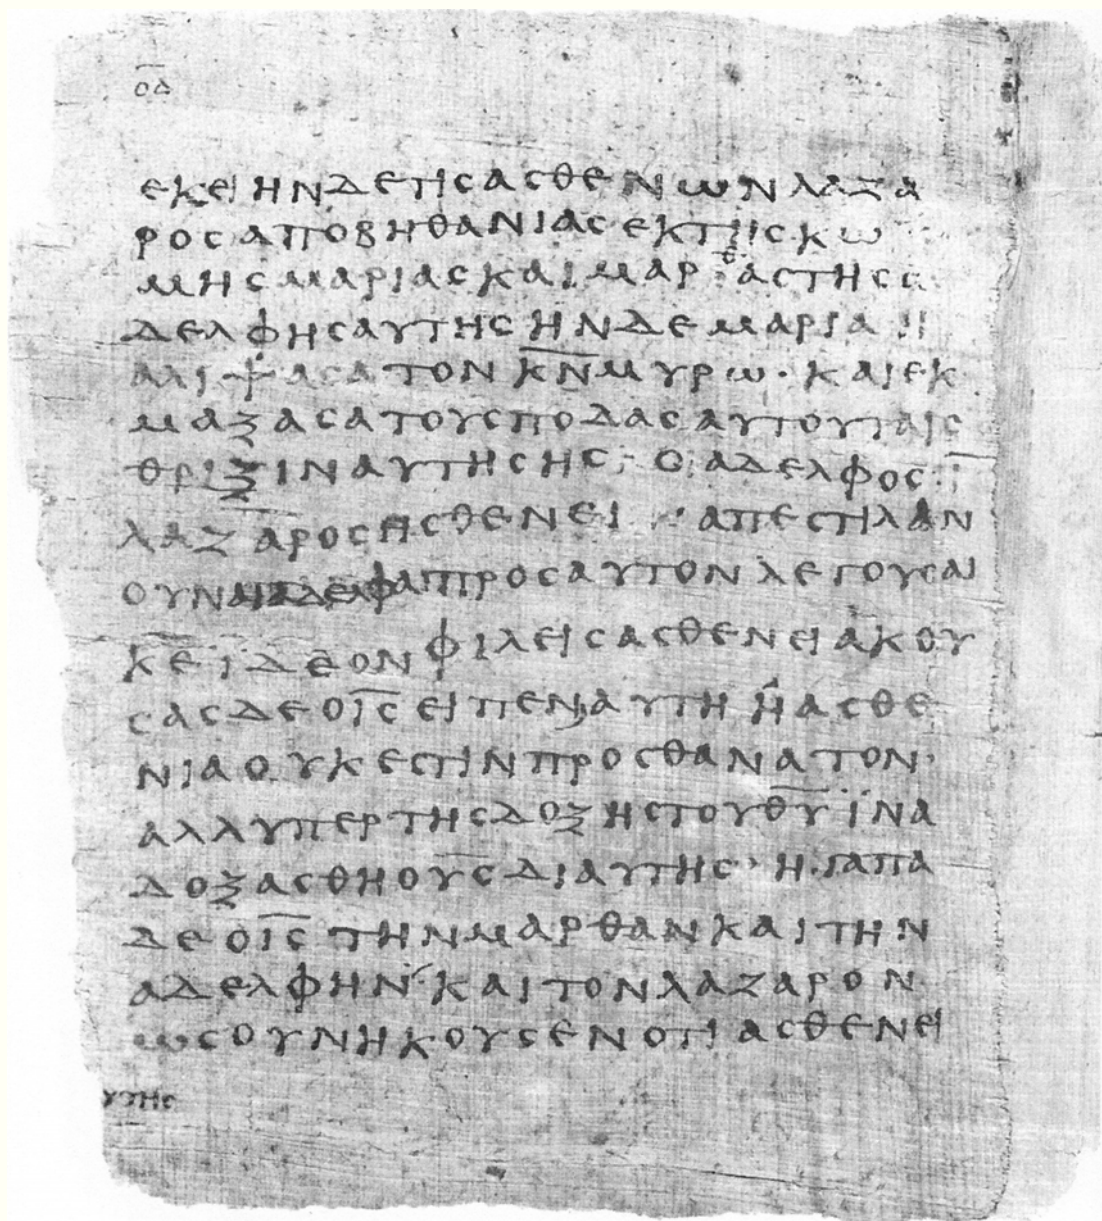 ΟΔ
ΕΚΕΙ ΗΝ ΔΕ ΤΙС ΑСΘΕΝΩΝ ΛΑΖΑ
ΡΟС ΑΠΟ ΒΗΘΑΝΙΑС ΕΚ ΤΗС ΚΩ
ΜΗС ΜΑΡΙΑС ΚΑΙ ΜΑΡΘΑС ΤΗС Α
ΔΕΛΦΗС ΑΥΤΗС ΗΝ ΔΕ ΜΑΡΙΑ Η
ΑΛΙΨΑСΑ ΤΟΝ Κ̅Ν̅ ΜΥΡΩ· ΚΑΙ ΕΚ
ΜΑΞΑСΑ ΤΟΥС ΠΟΔΑС ΑΥΤΟΥ ΤΑΙС
ΘΡΙΞΙΝ ΑΥΤΗС ΗС· Ο ΑΔΕΛΦΟС
ΛΑΖΑΡΟС ΗСΘΕΝΕΙ· ΑΠΕСΤΙΛΑΝ
ΟΥΝ ΠΡΟС ΑΥΤΟΝ ΛΕΓΟΥСΑΙ
Κ̅Ε̅ ΙΔΕ ΟΝ ΦΙΛΕΙС ΑСΘΕΝΕΙ ΑΚΟΥ
СΑС ΔΕ Ο Ι̅С̅ ΕΙΠΕΝ ΑΥΤΗ Η ΑСΘΕ
ΝΙΑ ΟΥΚ ΕСΤΙΝ ΠΡΟС ΘΑΝΑΤΟΝ·
ΑΛΛ ΥΠΕΡ ΤΗС ΔΟΞΗС ΤΟΥ Θ̅Υ̅ ΪΝΑ
ΔΟΞΑСΘΗ Ο Υ̅С̅ ΔΙ ΑΥΤΗС· ΗΓΑΠΑ
ΔΕ Ο Ι̅С̅ ΤΗΝ ΜΑΡΘΑΝ ΚΑΙ ΤΗΝ
ΑΔΕΛΦΗΝ ΚΑΙ ΤΟΝ ΛΑΖΑΡΟΝ
ΩС ΟΥΝ ΗΚΟΥСΕΝ ΟΤΙ ΑСΘΕΝΕΙ
ΥΤΗС